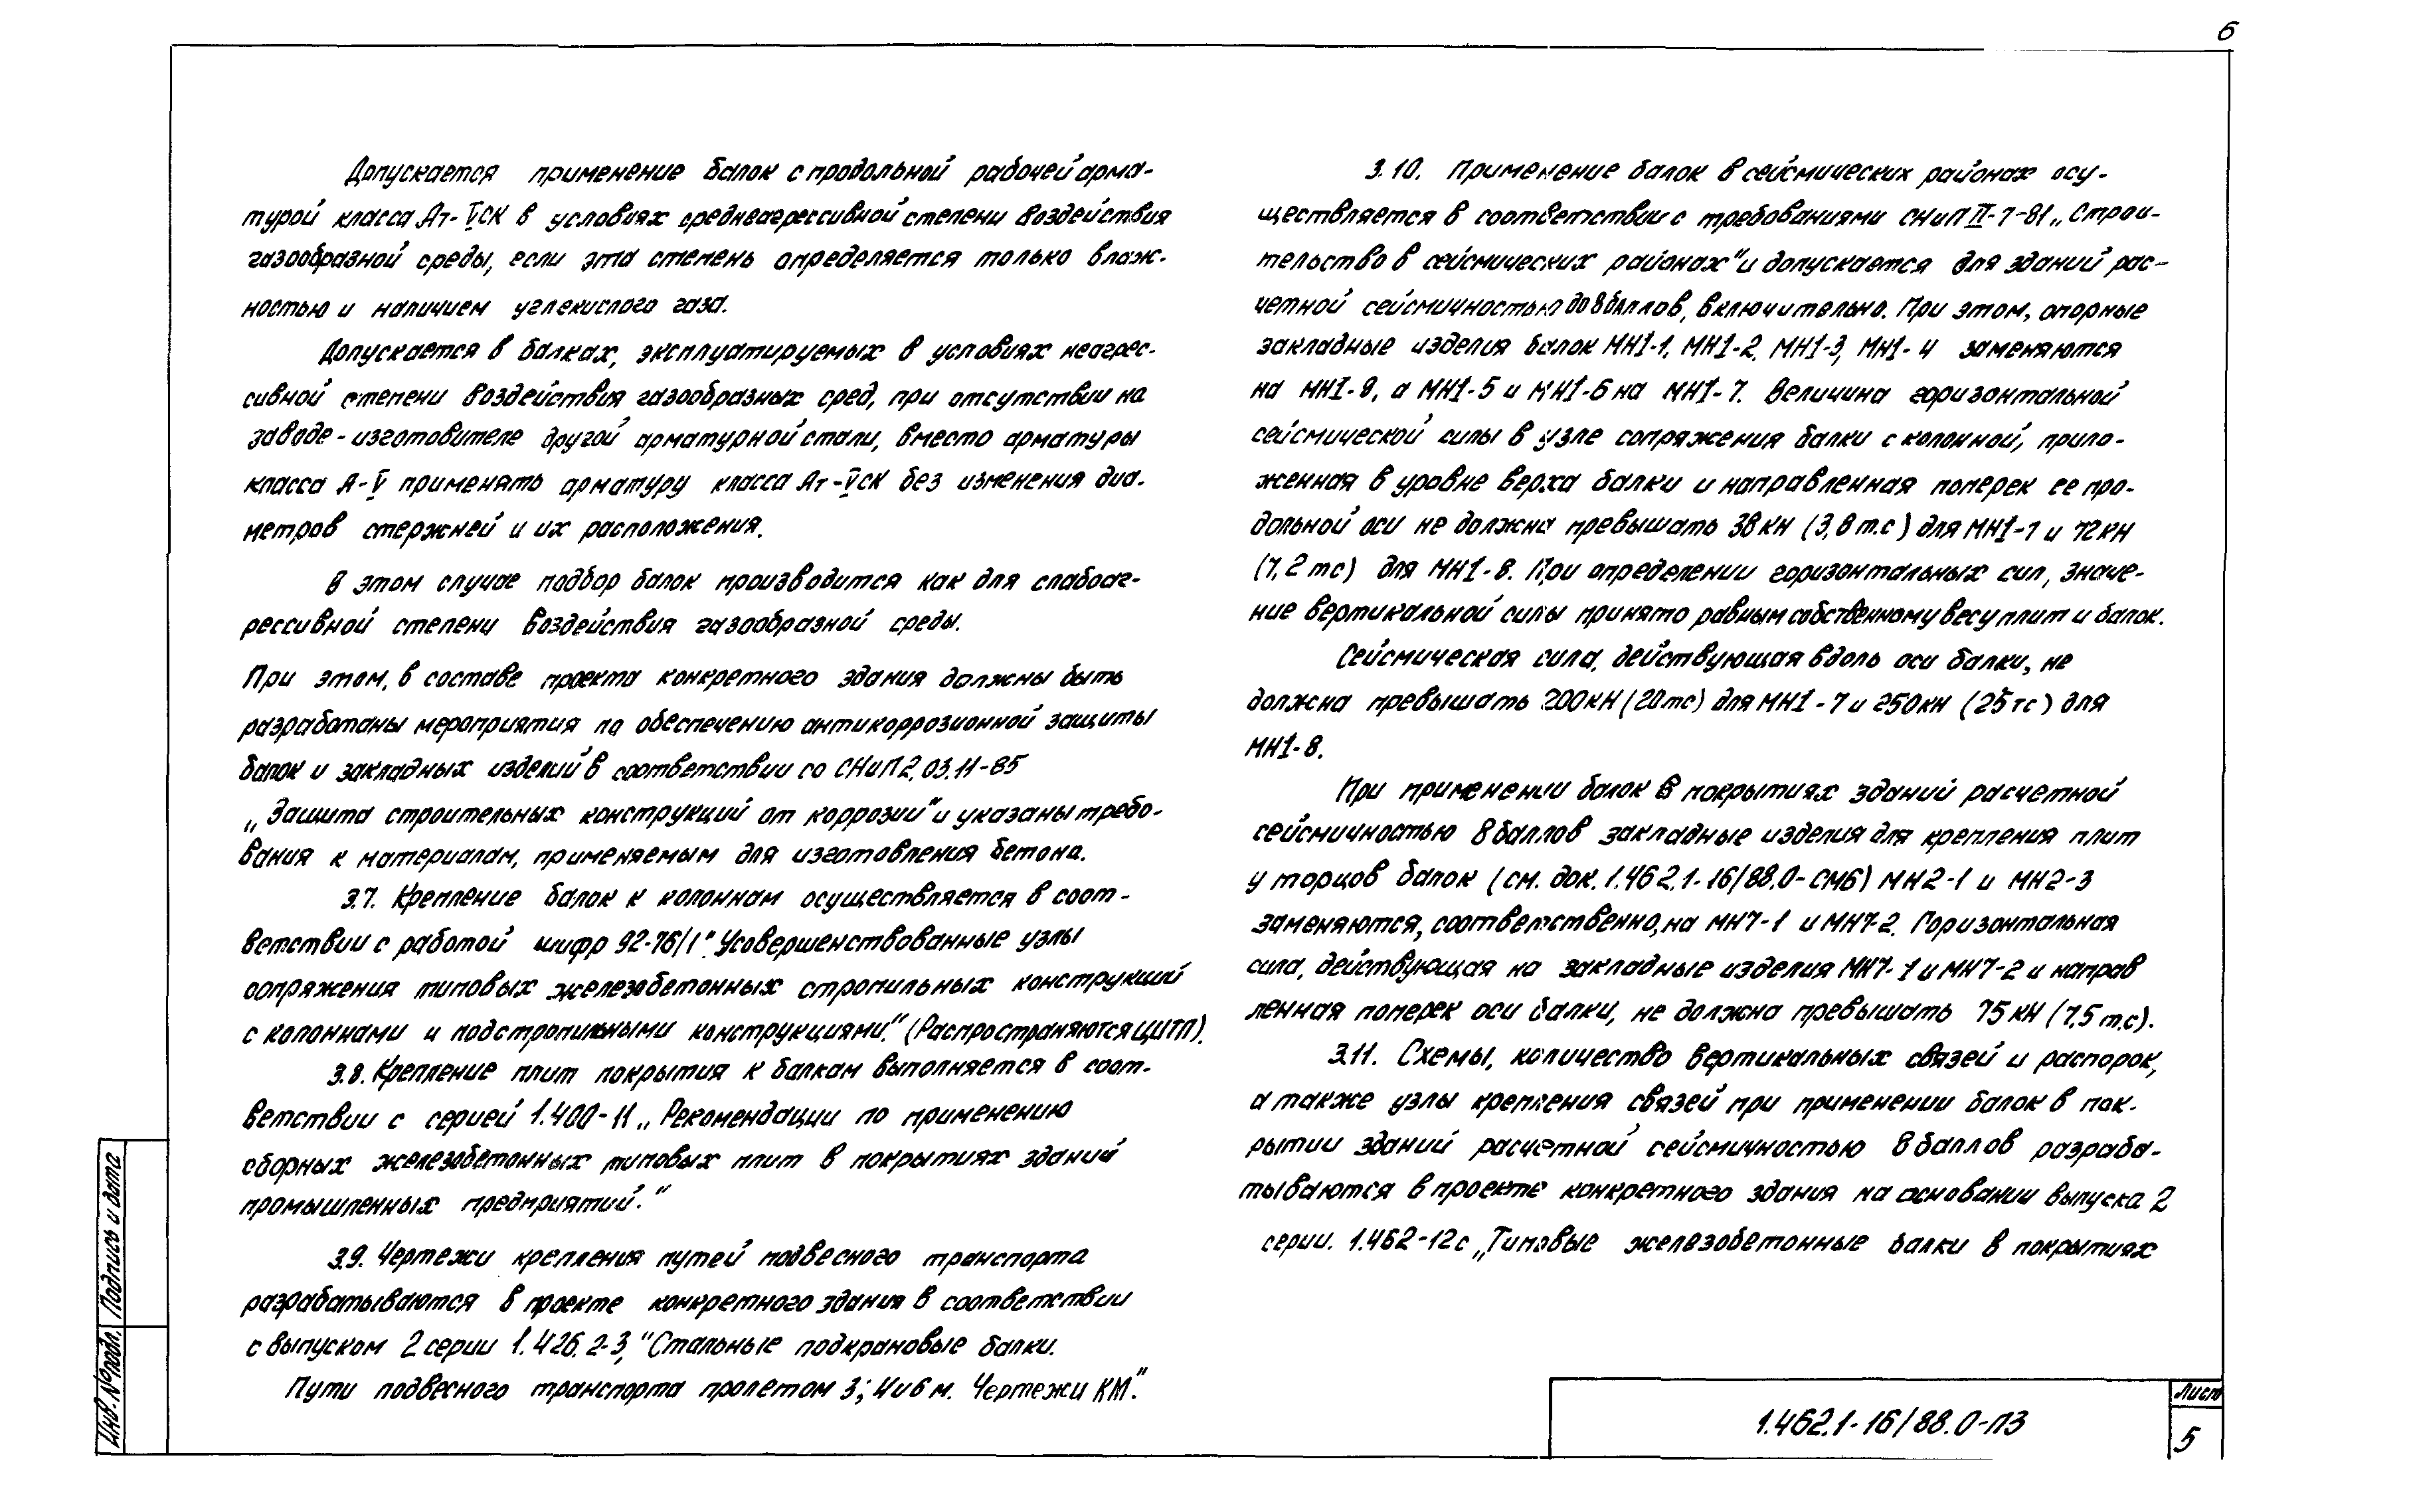 6
Допускается применение балок с продольной рабочей арма-
турой класса Ат-V̲СК в условиях среднеагрессивной степени воздействия
газообразной среды, если эта степень определяется только влаж-
ностью и наличием углекислого газа.
Допускается в балках, эксплуатируемых в условиях неагрес-
сивной степени воздействия газообразных сред, при отсутствии на
заводе-изготовителе другой арматурной стали, вместо арматуры
класса А-V применять арматуру класса Ат-VСК без изменения диа-
метров стержней и их расположения.
В этом случае подбор балок производится как для слабоаг-
рессивной степени воздействия газообразной среды.
При этом, в составе проекта конкретного здания должны быть
разработаны мероприятия по обеспечению антикоррозионной защиты
балок и закладных изделий в соответствии со СНиП 2.03.11-85
„Защита строительных конструкций от коррозии" и указаны требо-
вания к материалам, применяемым для изготовления бетона.
3.7. Крепление балок к колоннам осуществляется в соот-
ветствии с работой шифр 92-76/1 "Усовершенствованные узлы
сопряжения типовых железобетонных стропильных конструкций
с колоннами и подстропильными конструкциями." (Распространяются ЦИТП).
3.8. Крепление плит покрытия к балкам выполняется в соот-
ветствии с серией 1.400-11 „Рекомендации по применению
сборных железобетонных типовых плит в покрытиях зданий
промышленных предприятий."
3.9. Чертежи крепления путей подвесного транспорта
разрабатываются в проекте конкретного здания в соответствии
с выпуском 2 серии 1.426.2-3, "Стальные подкрановые балки.
Пути подвесного транспорта пролетом 3; 4 и 6 м. Чертежи КМ".
3.10. Применение балок в сейсмических районах осу-
ществляется в соответствии с требованиями СНиП II-7-81 „Строи-
тельство в сейсмических районах" и допускается для зданий рас-
четной сейсмичностью до 8 баллов, включительно. При этом, опорные
закладные изделия балок МН1-1, МН1-2, МН1-3, МН1-4 заменяются
на МН1-8, а МН1-5 и МН1-6 на МН1-7. Величина горизонтальной
сейсмической силы в узле сопряжения балки с колонной, прило-
женная в уровне верха балки и направленная поперек ее про-
дольной оси не должна превышать 38 кН (3,8 т.с) для МН1-7 и 72 кН
(7,2 тс) для МН1-8. При определении горизонтальных сил, значе-
ние вертикальной силы принято равным собственному весу плит и балок.
Сейсмическая сила, действующая вдоль оси балки, не
должна превышать 200 кН (20 тс) для МН1-7 и 250 кН (25 тс) для
МН1-8.
При применении балок в покрытиях зданий расчетной
сейсмичностью 8 баллов закладные изделия для крепления плит
у торцов балок (см. док. 1.462.1-16/88.0-СМ6) МН2-1 и МН2-3
заменяются, соответственно, на МН7-1 и МН7-2. Горизонтальная
сила, действующая на закладные изделия МН7-1 и МН7-2 и направ
ленная поперек оси балки, не должна превышать 75 кН (7,5 т.с).
3.11. Схемы, количество вертикальных связей и распорок,
а также узлы крепления связей при применении балок в пок-
рытии зданий расчетной сейсмичностью 8 баллов разраба-
тываются в проекте конкретного здания на основании выпуска 2
серии. 1.462-12с „Типовые железобетонные балки в покрытиях
Инв. № подл. Подпись и дата
1.462.1-16/88.0-ПЗ
Лист
5